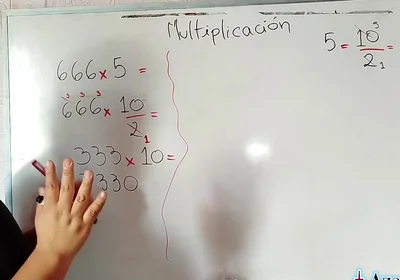 Multiplicación
666 x 5 =
3 3 3
666 x 10/2 1 =
333 x 10 =
330
5 = 10/2 = 
5
1